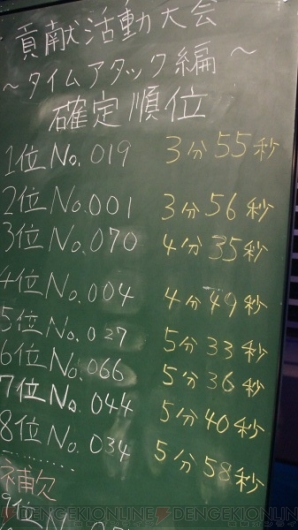 貢献活動大会
～タイムアタック編～
確定順位
1位 No.019 3分55秒
2位 No.001 3分56秒
3位 No.070 4分35秒
4位 No.004 4分49秒
5位 No.027 5分33秒
6位 No.066 5分36秒
7位 No.044 5分40秒
8位 No.034 5分58秒
補欠
DENGEKIONLINE